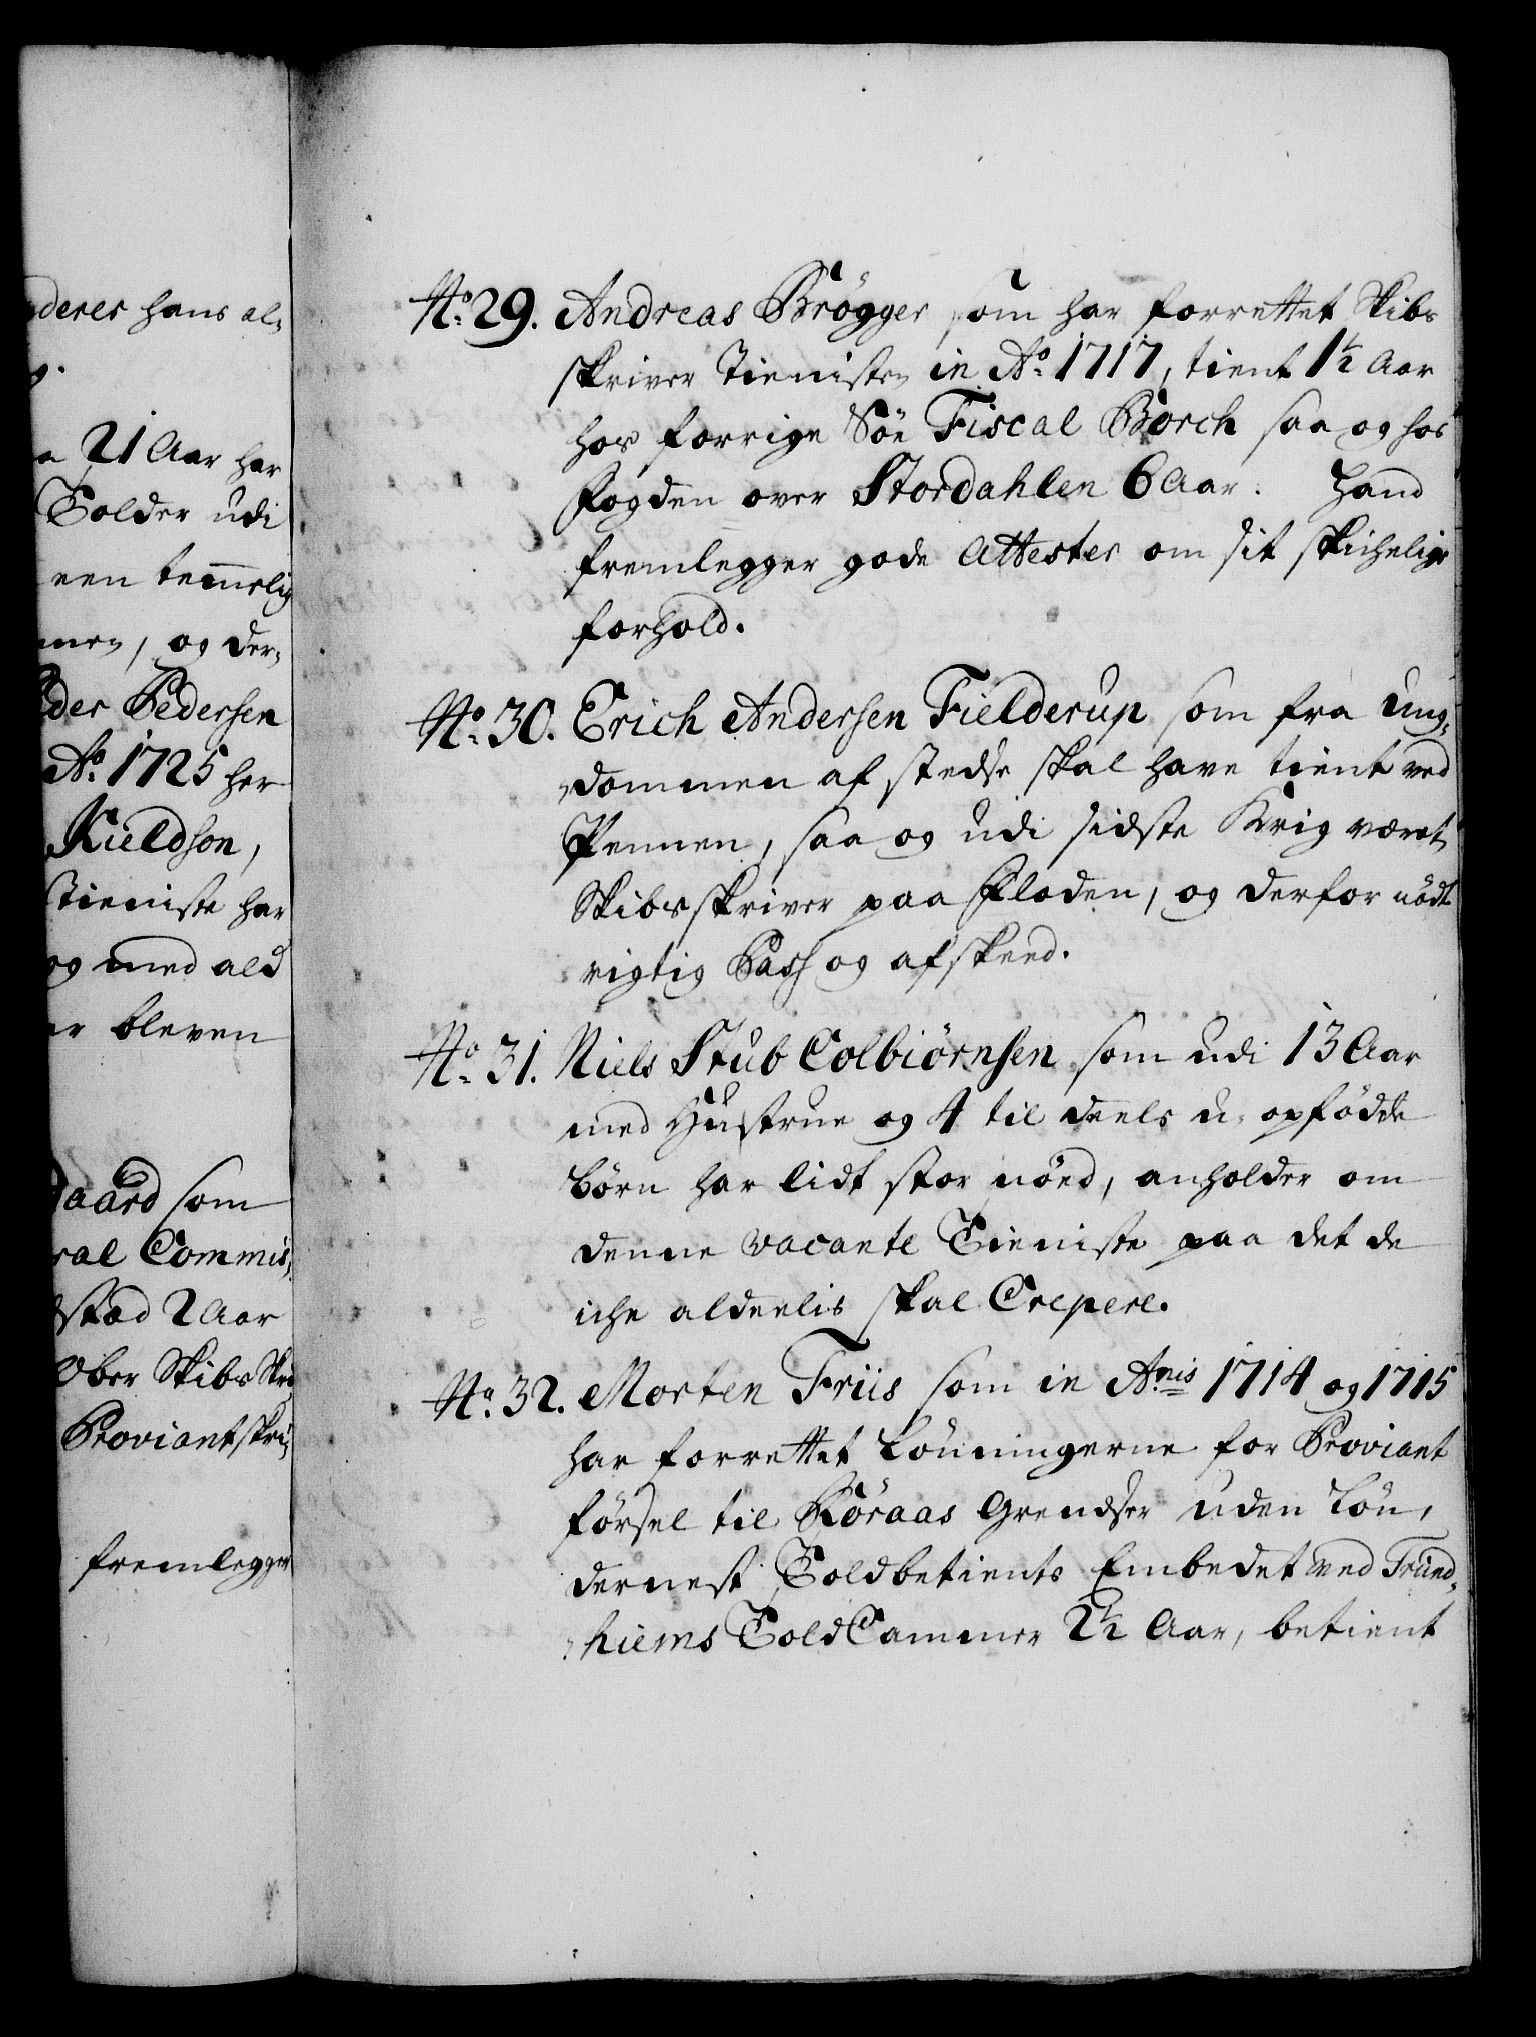 deres hans al-
g.
a 21 Aar har
Tolder udi
een temmelig
men, og der-
der Pedersen
Ao. 1725 her
Kieldson,
Tieniste har
og med ald
er bleven
gaard som
ral Commis-
stad 2 Aar
Ober Skibs Skri
Proviantskri-
fremlegger
No. 29. Andreas Brøgger som har forrettet Skibs
skriver Tienisten in Ao. 1717, tient 1½ Aar
hos forrige Søe Fiscal Borch saa og hos
Fogden over Stordahlen 6 Aar. Hand
fremlegger gode Attester om sit skichelige
forhold.
No. 30. Erich Andersen Fielderup som fra Ung-
dommen af stedse skal have tient ved
Pennen, saa og udi sidste Krig været
Skibsskriver paa Floden, og derfor nødt
rigtig Pass og afskeed.
No. 31. Niels Stub Colbiørnsen som udi 13 Aar
med Hustrue og 4 til deels u-opfødde
børn har lidt stor nøed, anholder om
denne vacante Tieniste paa det de
iche aldeelis skal Crepere.
No. 32. Morten Friis som in Anis 1714 og 1715
har forrettet Lønningerne for Proviant
førsel til Røraas Grendser uden Løn,
dernest Toldbetients Embedet ved Trund-
hiems Told Cammer 2½ Aar, betient